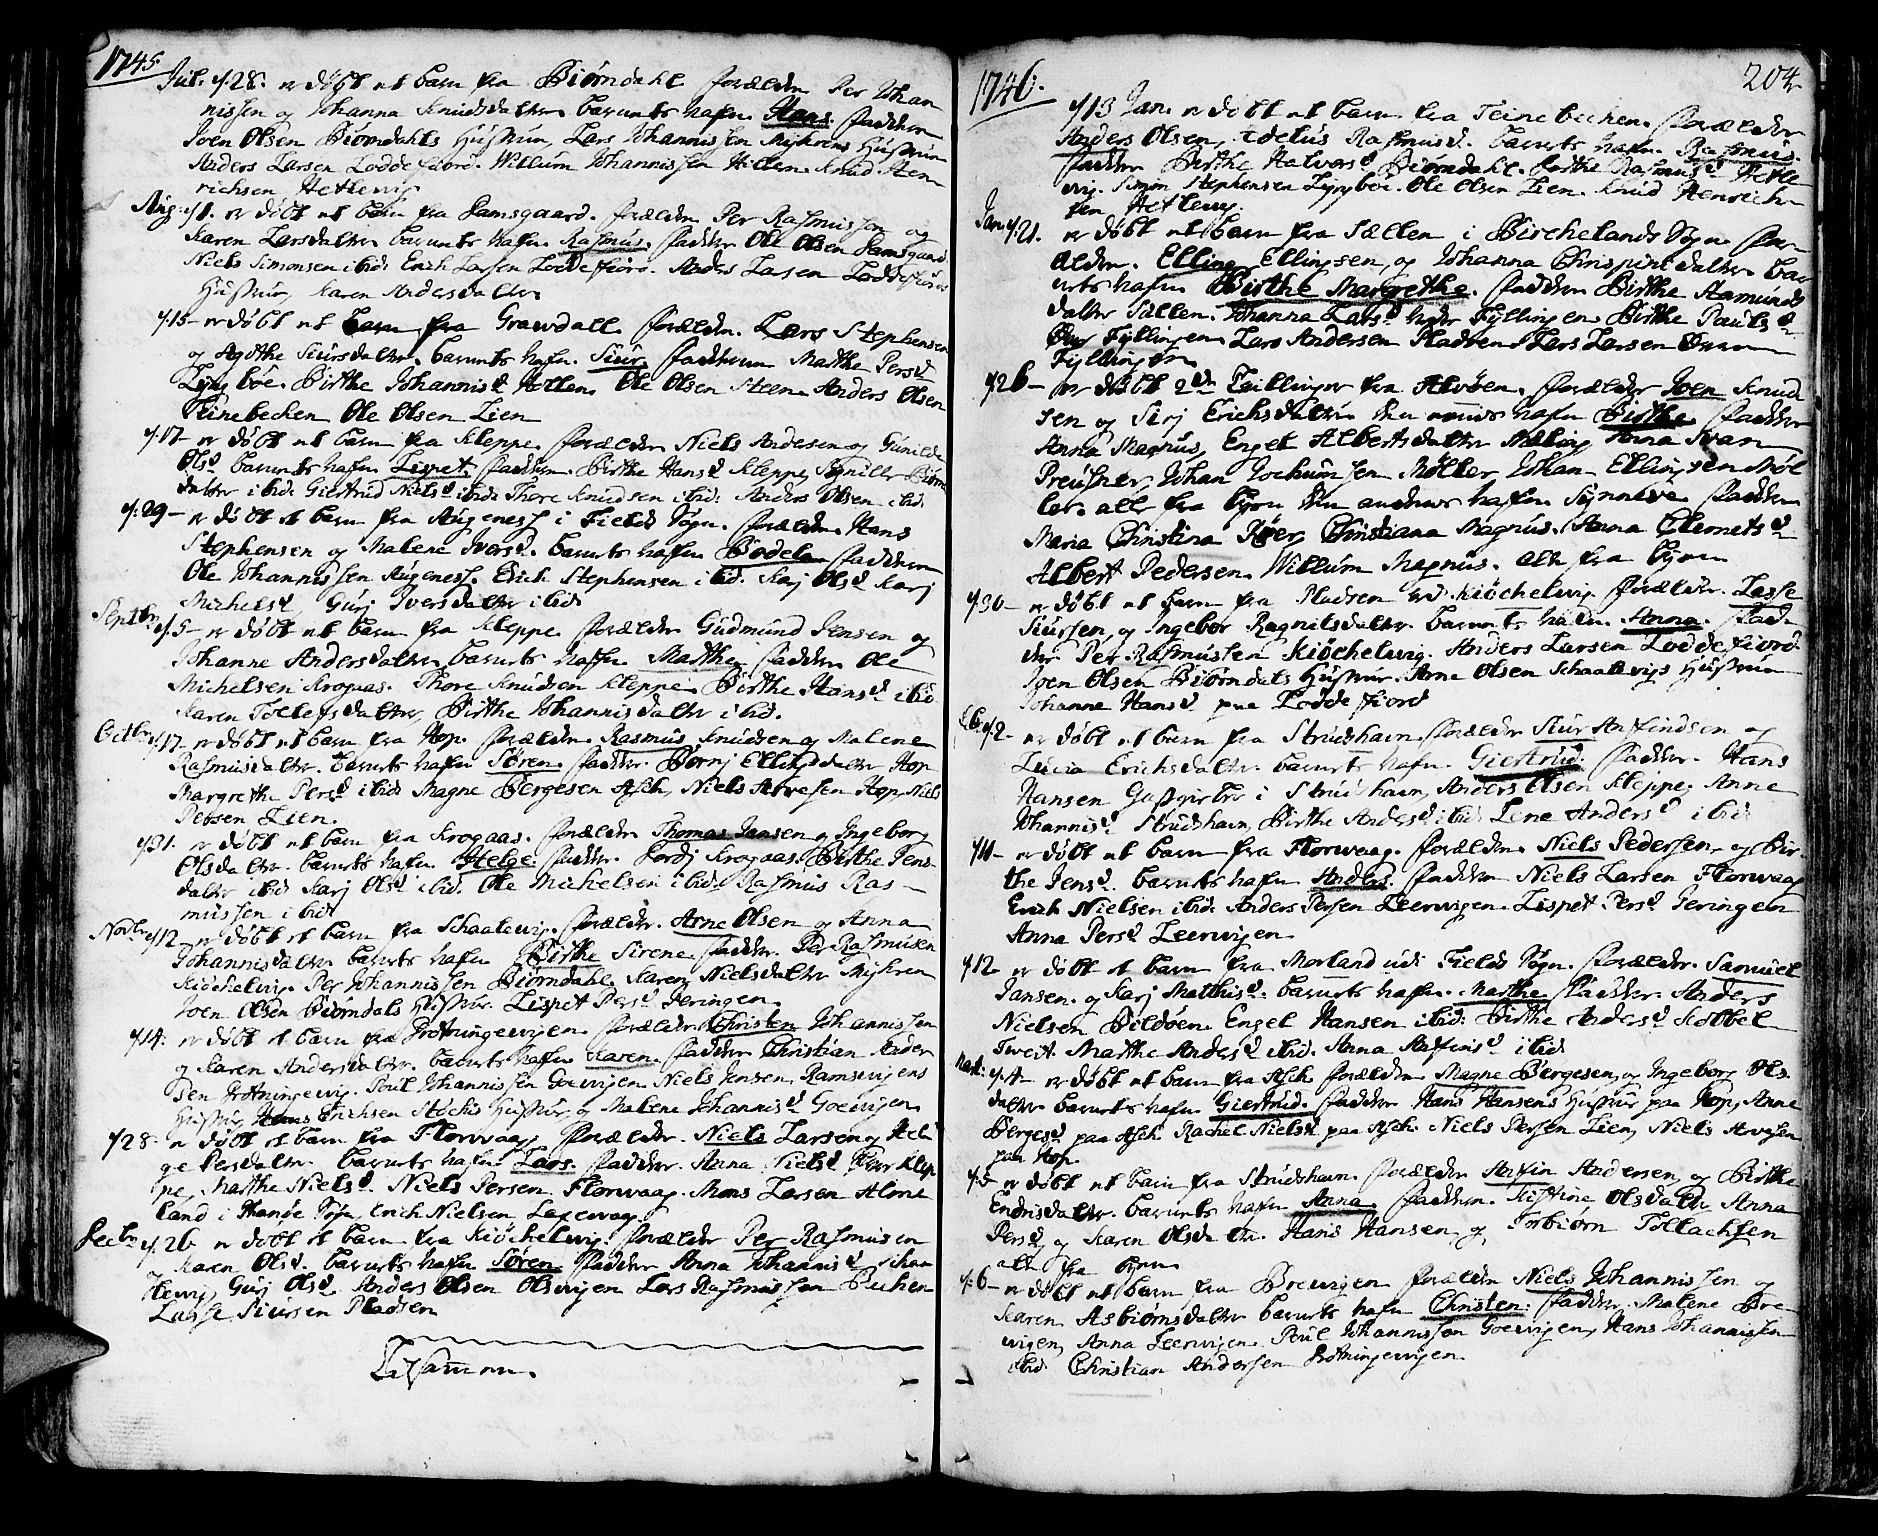 1745
Jul: d. 28. er døbt et barn fra Biørndahl forældre Per Johan
nissen og Johanna Knudsdatter barnets nafn Hans. fadder
Joen Olsen Biørndahls Hustrue, Lars Johannissen Myhrens Hustrue
Anders Larsen Loddefiord. Willum Johannissen Hillen. Knud Hen
richsen Hetlevig
Aug: d. 1. er døbt et barn fra Samsgaard. forældre Per Rasmussen og
Karen Larsdatter barnets nafn Rasmus. fadder Ole Olsen Samsgaard.
Niels Simonsen ibid: Erich Larsen Loddefiord. Anders Larsen Loddefiords
Hustrue, Karen Andersdatter
d. 15 - er døbt et barn fra Grawdall. forældre. Lars Stephensen
og Agothe Siursdatter. barnets nafn. Siur. fadderne Marthe Persd
Lyngbøe. Birthe Johannisd Hillen. Ole Olsen Steen. Anders Olsen
Teinebechen Ole Olsen Lien
d. 17 - er døbt et barn fra Kleppe. forældre Niels Andersen og Gunilde
Olsd barnets nafn Lispet. fadder. Birthe Hansd Kleppe, Synille Biørns
datter ibid: Giertrud Nielsd ibid: Thore Knudsen ibid: Anders Olsen ibid.
d. 29 - er døbt et barn fra Augeness i Fields Sogn. forældre Hans
Stephensen og Malene Iversd. barnets nafn Bodela fadderne
Ole Johannissen Augeness. Erich Stephensen ibid. Karj Olsd Karj
Michelsd, Gurj Iversdatter ibid
Septbr d. 5 - er døbt et barn fra Kleppe forældre Gudmund Jensen og
Johanne Andersdatter barnets nafn Marthe fadder Ole
Michelsen Krogaas. Thore Knudsen Kleppe Birthe Hansd ibid
Karen Tollefsdatter, Birthe Johannisdatter ibid.
Octbr d. 17 - er døbt et barn fra Hop. forældre. Rasmus Knudsen og Malene
Rasmusdatter. barnets nafn Søren fadder. Børnj Ellingsdatter Hop
Margrethe Persd ibid: Magne Børgesen Asch, Niels Arvesen Hop, Niels
Persen Lien.
d. 31. er døbt et barn fra Krogaas. forældre Thomas Jansen og Ingeborg
Olsdatter. barnets nafn Helge. fadder. Lordj Krogaas. Birthe Jens
datter ibid: Karj Olsd ibid. Ole Michelsen ibid. Rasmus Ras-
mussen ibid
Novbr d. 12 - er døbt et barn fra Schaalevig. forældre. Arne Olsen og Anna
Johannisdatter barnets nafn Birthe Sirene fadder. Per Rasmusen
Kiøchelvig. Per Johannissen Biørndahl. Karen Nielsdatter Myhren
Joen Olsen Biørndals Hustrue. Lispet Persd Geringen.
d. 14: er døbt et barn fra Drotningevigen. forældre Christen Johannissen
og Karen Andersdatter. barnets nafn Karen. fadder Christian Ander
sen Drotningevig. Poul Johannissen Goevigen Niels Jensen Ramsvigens
Hustrue, Hans Erichsen Støchis Hustrue, og Malene Johannisd Goevigen
d. 28 - er døbt et barn fra Florvaag forældre. Niels Larsen og Hel
ge Persdatter. barnets nafn Lars. fadder. Anna Nielsd Klep
pe, Marthe Nielsd. Niels Persen. Florvaag. Mons Larsen Alme
land i Hande Sogn, Erich Nielsen
Decbr d. 26 er døbt et barn fra Kiøchelvig. forældre Per Rasmusen
og Karen Olsd. barnets nafn Søren fadder Anna Johannisd Schaa
levig, Gurj Olsd Anders Olsen Olsvigen Lars Rasmussen
Lasse Siursen Pladsen
Tilsammen.
204
1746.
d. 13 Jan. er døbt et barn fra Teinebechen. forældre
Anders Olsen, Edelus Rasmusd. barnets nafn Rasmus.
fadder Birthe Halvorsd Biørndahl. Birthe Rasmusd Hetle
vig. Simon Stephensen Lyngbøe. Ole Olsen Lien. Knud Henrich
sen Hetlevig.
Jan. d. 21. er døbt et barn fra Sælen i Birchelands Sogn for
ældre. Elling Ellingsen, og Johanna Chrispinsdatter bar
nets nafn Birthe Margrethe. fadder Birthe Aamunds
datter Sælen. Johanna Larsd nedre Fyllingen Birthe Paulsd
Øvre Fyllingen. Lars Andersen Pladsen, Lars Larsen Øvre
Fyllingen
d. 26 - er døbt 2de Tvillinger fra Alvøen. forældre Joen Knud
sen og Sirj Erichsdatter den nafn Birthe fadder
Anna Magnus, Engel Albertsdatter Mæling Anna
Preusner, Johan Jochumsen Møller, Johan Ellingsen Møl
ler. alle fra byen den andens nafn Synneve fadder
Maria Christina Røer, Christiana Magnus. Anna Clemetsd
Albert Pedersen. Willum Magnus. alle fra byen
d. 30 - er døbt et barn fra Pladsen ved Kiøchelvig forældre. Lasse
Siursen, og Ingebor Ragnildsdatter. barnets nafn. Anna. fad-
der Per Rasmusen Kiøchelvig. Anders Larsen Loddefiord
Joen Olsen Biørndals Hustrue. Arne Olsen Schaalevigs Hustrue
Johanne Hansd paa Loddefiord
Feb: d. 2 - er døbt et barn fra Strudshavn forældre Siur Anfindsen og
Lucia Erichsdatter. barnets nafn. Giertrud. fadder. Hans
Hansen Giestgieber i Strudshavn, Anders Olsen Kleppe, Anne
Johannisd Strudshavn, Birthe Andersd ibid Lene Andersd ibid
d. 11 - er døbt et barn fra Florvaag. forældre. Niels Pedersen, og Bir
the Jensd. barnets nafn Anders. fadder Niels Larsen Florvaag
Erich Nielsen ibid. Anders Persen Leervigen. Lispet Persd Geringen
Anna Persd Leervigen
d. 12 er døbt et barn fra Morland udi Fields Sogn. forældre. Samuel
Jansen. og Karj Matthisd. barnets nafn. Marthe. fadder. Anders
Nielsen Bildøen. Engel Hansen ibid: Birthe Andersd Kobbel
Tweit. Marthe Andersd ibid. Anna ibid
Mart: d. 4 - er døbt et barn fra Asch forældre Magne Børgesen, og Ingeborg Ols
datter barnets nafn Giertrud. fadder Hans Hansens Hustrue paa Hop, Anne
Børgesd paa Asch. Rachel Nielsd paa Asch. Niels Persen Lien, Niels Arvesen
paa Hop.
d. 5 er døbt et barn fra Strudshavn. forældre Anfin Andersen, og Birthe
Endrisdatter. barnets nafn Anna. fadder. Kistine Olsdatter Anna
Persd og Karen Olsdatter. Hans Hansen, og Torbiørn Tollachsen
alle fra byen
d. 6 - er døbt et barn fra Brevigen forældre Niels Johannissen og
Karen Asbiørnsdatter barnets nafn Christen: fadder. Malene Bre
vigen, Anna Leervigen. Poul Johannissen Goevigen, Hans Johannissen
ibid Christian Andersen Drotningevigen.